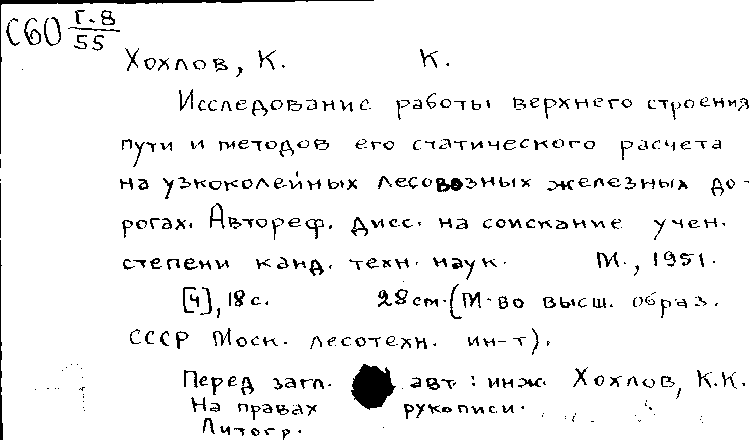 С60 Г.8/55
Хохлов, К. К.
Исследование работы верхнего строения
пути и методов его статического расчета
на узкоколейных лесовозных железных до-
рогах. Автореф. дисс. на соискание учен.
степени канд. техн. наук. М., 1951.
[4], 18 с. 28 см. (М-во высш. образ.
СССР Моск. лесотехн. ин-т).
Перед загл. авт.: инж. Хохлов, К.К.
На правах рукописи.
Литогр.